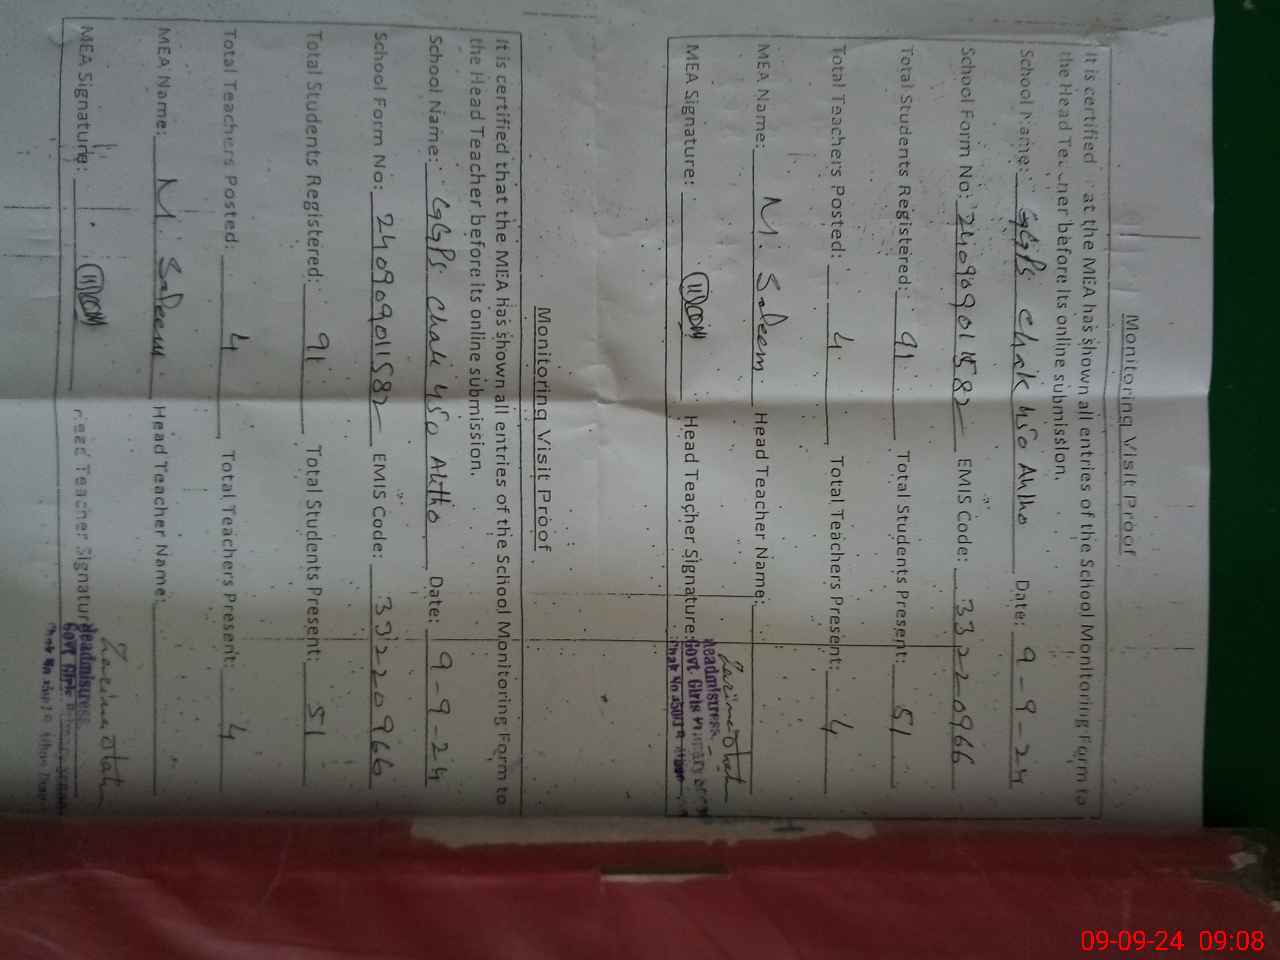 Monitoring Visit Proof
It is certified at the MEA has shown all entries of the School Monitoring Form to
the Head before its online submission.
School Name: GGPS Chak 450 Date: 9-9-24
School Form No: 24090901582 EMIS Code: 33220966
Total Students Registered: 91 Total Students Present: 51
Total Teachers Posted: 4 Total Teachers Present: 4
MEA Name: M. Saleem Head Teacher Name:
MEA Signature: Head Teacher Signature:
Headmistress
Govt Girls Primary
Monitoring Visit Proof
It is certified that the MEA has shown all entries of the School Monitoring Form to
the Head Teacher before its online submission.
School Name: GGPS Chak 450 Date: 9-9-24
School Form No: 24090901582 EMIS Code: 33220966
Total Students Registered: 91 Total Students Present: 51
Total Teachers Posted: 4 Total Teachers Present: 4
MEA Name: M. Saleem Head Teacher Name:
MEA Signature: Head Teacher Signature
Headmistress
Govt Girls
09-09-24 09:08